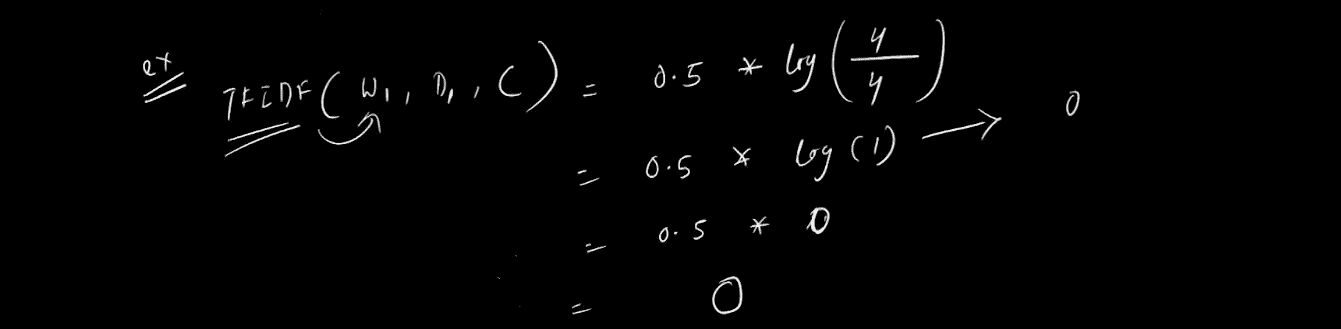 ex TFIDF(W₁, D₁, C) = 0.5 * log(4/4)
= 0.5 * log(1) → 0
= 0.5 * 0
= 0